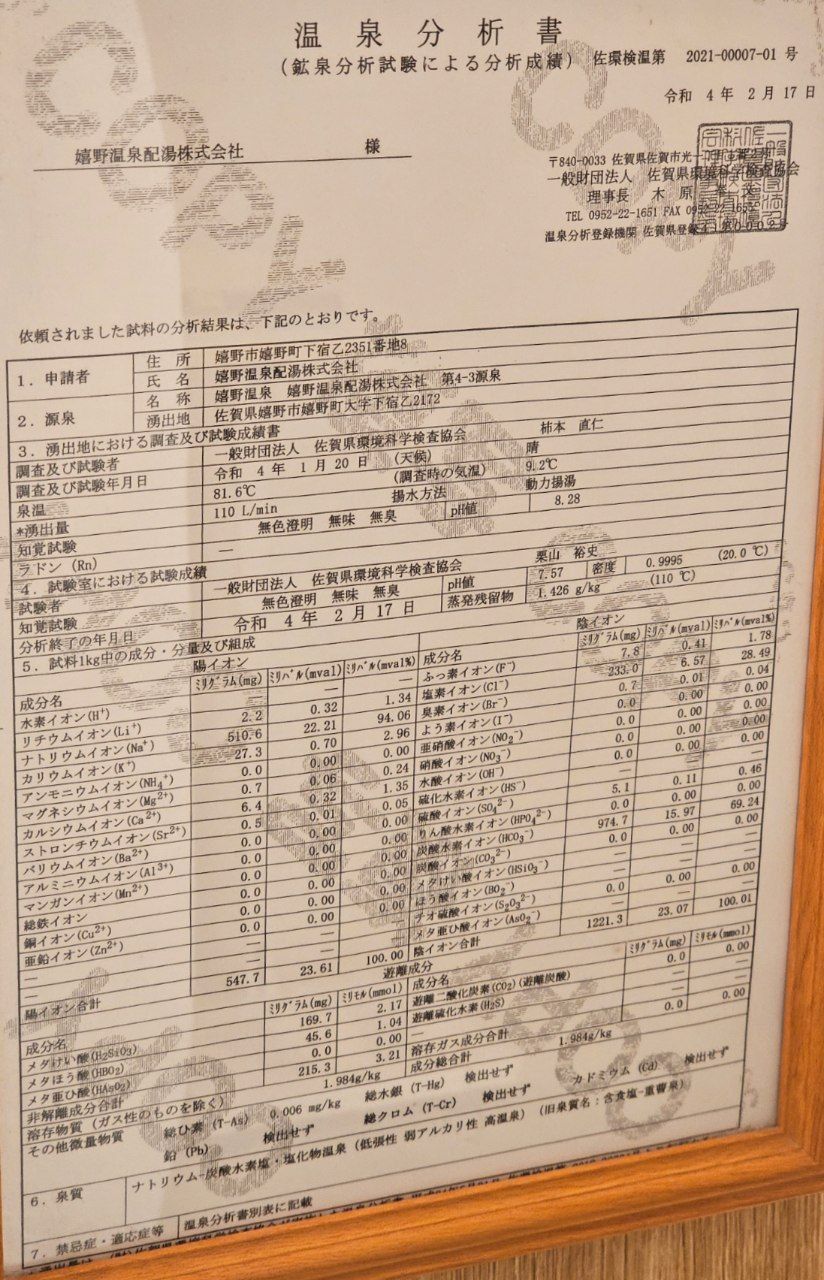 温泉分析書
(鉱泉分析試験による分析成績) 佐環検温第 2021-00007-01 号
令和 4年 2月17日
嬉野温泉配湯株式会社 様
〒840-0033 佐賀県佐賀市光一丁目
一般財団法人 佐賀県環境科学検査協会
理事長 木原
TEL 0952-22-1651 FAX 0952-22-165
温泉分析登録機関 佐賀県登録
COPY
依頼されました試料の分析結果は、下記のとおりです。
1.申請者 住所 嬉野市嬉野町下宿乙2351番地8
氏名 嬉野温泉配湯株式会社
2.源泉 名称 嬉野温泉 嬉野温泉配湯株式会社 第4-3源泉
湧出地 佐賀県嬉野市嬉野町大字下宿乙2172
3.湧出地における調査及び試験成績書
調査及び試験者 一般財団法人 佐賀県環境科学検査協会 柿本 直仁
調査及び試験年月日 令和 4年 1月20日 (天候) 晴
泉温 81.6℃ (調査時の気温) 9.2℃
*湧出量 110 L/min 揚水方法 動力揚湯
知覚試験 無色澄明 無味 無臭 pH値 8.28
ラドン (Rn) —
4.試験室における試験成績
試験者 一般財団法人 佐賀県環境科学検査協会 栗山 裕史
知覚試験 無色澄明 無味 無臭 pH値 7.57 密度 0.9995 (20.0 ℃)
分析終了の年月日 令和 4年 2月17日 蒸発残留物 1.426 g/kg (110 ℃)
5.試料1kg中の成分・分量及び組成
陽イオン
成分名 ミリグラム(mg) ミリバル(mval) ミリバル(mval%)
水素イオン(H⁺) — — —
リチウムイオン(Li⁺) 2.2 0.32 1.34
ナトリウムイオン(Na⁺) 510.6 22.21 94.06
カリウムイオン(K⁺) 27.3 0.70 2.96
アンモニウムイオン(NH₄⁺) 0.0 0.00 0.00
マグネシウムイオン(Mg²⁺) 0.7 0.06 0.24
カルシウムイオン(Ca²⁺) 6.4 0.32 1.35
ストロンチウムイオン(Sr²⁺) 0.5 0.01 0.05
バリウムイオン(Ba²⁺) 0.0 0.00 0.00
アルミニウムイオン(Al³⁺) 0.0 0.00 0.00
マンガンイオン(Mn²⁺) 0.0 0.00 0.00
総鉄イオン 0.0 0.00 0.00
銅イオン(Cu²⁺) 0.0 0.00 0.00
亜鉛イオン(Zn²⁺) 0.0 0.00 0.00
— — — —
— — — —
陽イオン合計 547.7 23.61 100.00
陰イオン
成分名 ミリグラム(mg) ミリバル(mval) ミリバル(mval%)
ふっ素イオン(F⁻) 7.8 0.41 1.78
塩素イオン(Cl⁻) 233.0 6.57 28.49
臭素イオン(Br⁻) 0.7 0.01 0.04
よう素イオン(I⁻) 0.0 0.00 0.00
亜硝酸イオン(NO₂⁻) 0.0 0.00 0.00
硝酸イオン(NO₃⁻) 0.0 0.00 0.00
水酸イオン(OH⁻) — — —
硫化水素イオン(HS⁻)
硫酸イオン(SO₄²⁻) 5.1 0.11 0.46
りん酸水素イオン(HPO₄²⁻) 0.0 0.00 0.00
炭酸水素イオン(HCO₃⁻) 974.7 15.97 69.24
炭酸イオン(CO₃²⁻) 0.0 0.00 0.00
メタけい酸イオン(HSiO₃⁻) — — —
ほう酸イオン(BO₂⁻) — — —
チオ硫酸イオン(S₂O₃²⁻) 0.0 0.00 0.00
メタ亜ひ酸イオン(AsO₂⁻) — — —
陰イオン合計 1221.3 23.07 100.01
遊離成分
成分名 ミリグラム(mg) ミリモル(mmol)
メタけい酸(H₂SiO₃) 169.7 2.17
メタほう酸(HBO₂) 45.6 1.04
メタ亜ひ酸(HAsO₂) 0.0 0.00
非解離成分合計 215.3 3.21
溶存物質 (ガス性のものを除く) 1.984g/kg
成分名 ミリグラム(mg) ミリモル(mmol)
遊離二酸化炭素(CO₂)(遊離炭酸) 0.0 0.00
遊離硫化水素(H₂S) — —
— — —
溶存ガス成分合計 0.0 0.00
成分総合計 1.984g/kg
その他微量物質 総ひ素 (T-As) 0.006 mg/kg 総水銀 (T-Hg) 検出せず カドミウム (Cd) 検出せず
鉛 (Pb) 検出せず 総クロム (T-Cr) 検出せず
6.泉質 ナトリウム-炭酸水素塩・塩化物温泉 (低張性 弱アルカリ性 高温泉) (旧泉質名:含食塩-重曹泉)
7.禁忌症・適応症等 温泉分析書別表に記載